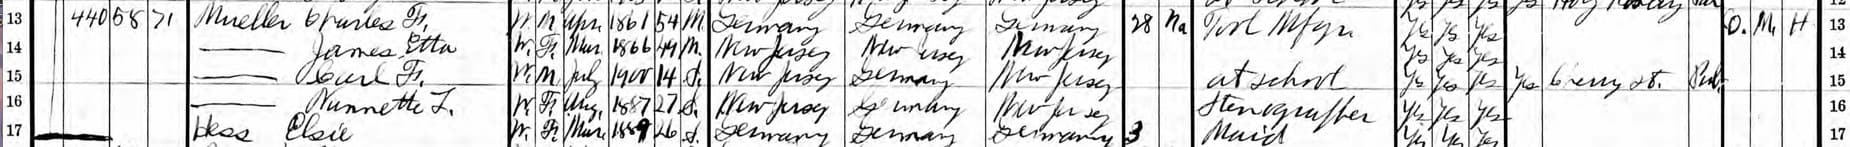 13 440 58 71 Mueller Charles F. W. M Apr. 1861 54 M. Germany Germany Germany 28 Na Tool Mfgr Yes Yes Yes O. M. H 13
14 —— James Etta W. F. Mar. 1866 49 M. New Jersey New Jersey New Jersey Yes Yes Yes 14
15 —— Carl F. W. M July 1900 14 S. New Jersey Germany New Jersey at school Yes Yes Yes Yes Cherry St. Pub. 15
16 —— Nannette L. W. F. Aug. 1887 27 S. New Jersey Germany New Jersey Stenographer Yes Yes Yes 16
17 Hess Elsie W. F. Mar. 1889 26 S. Germany Germany Germany 3 Maid Yes Yes Yes 17